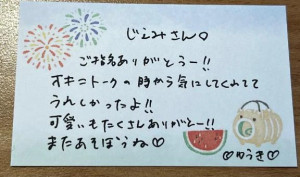 じぇみさん♡
ご指名ありがとうー!!
オキニトークの時から気にしてくれてて
うれしかったよ!!
可愛いもたくさんありがとー!!
またあそぼうね♡
♡ゆうき♡